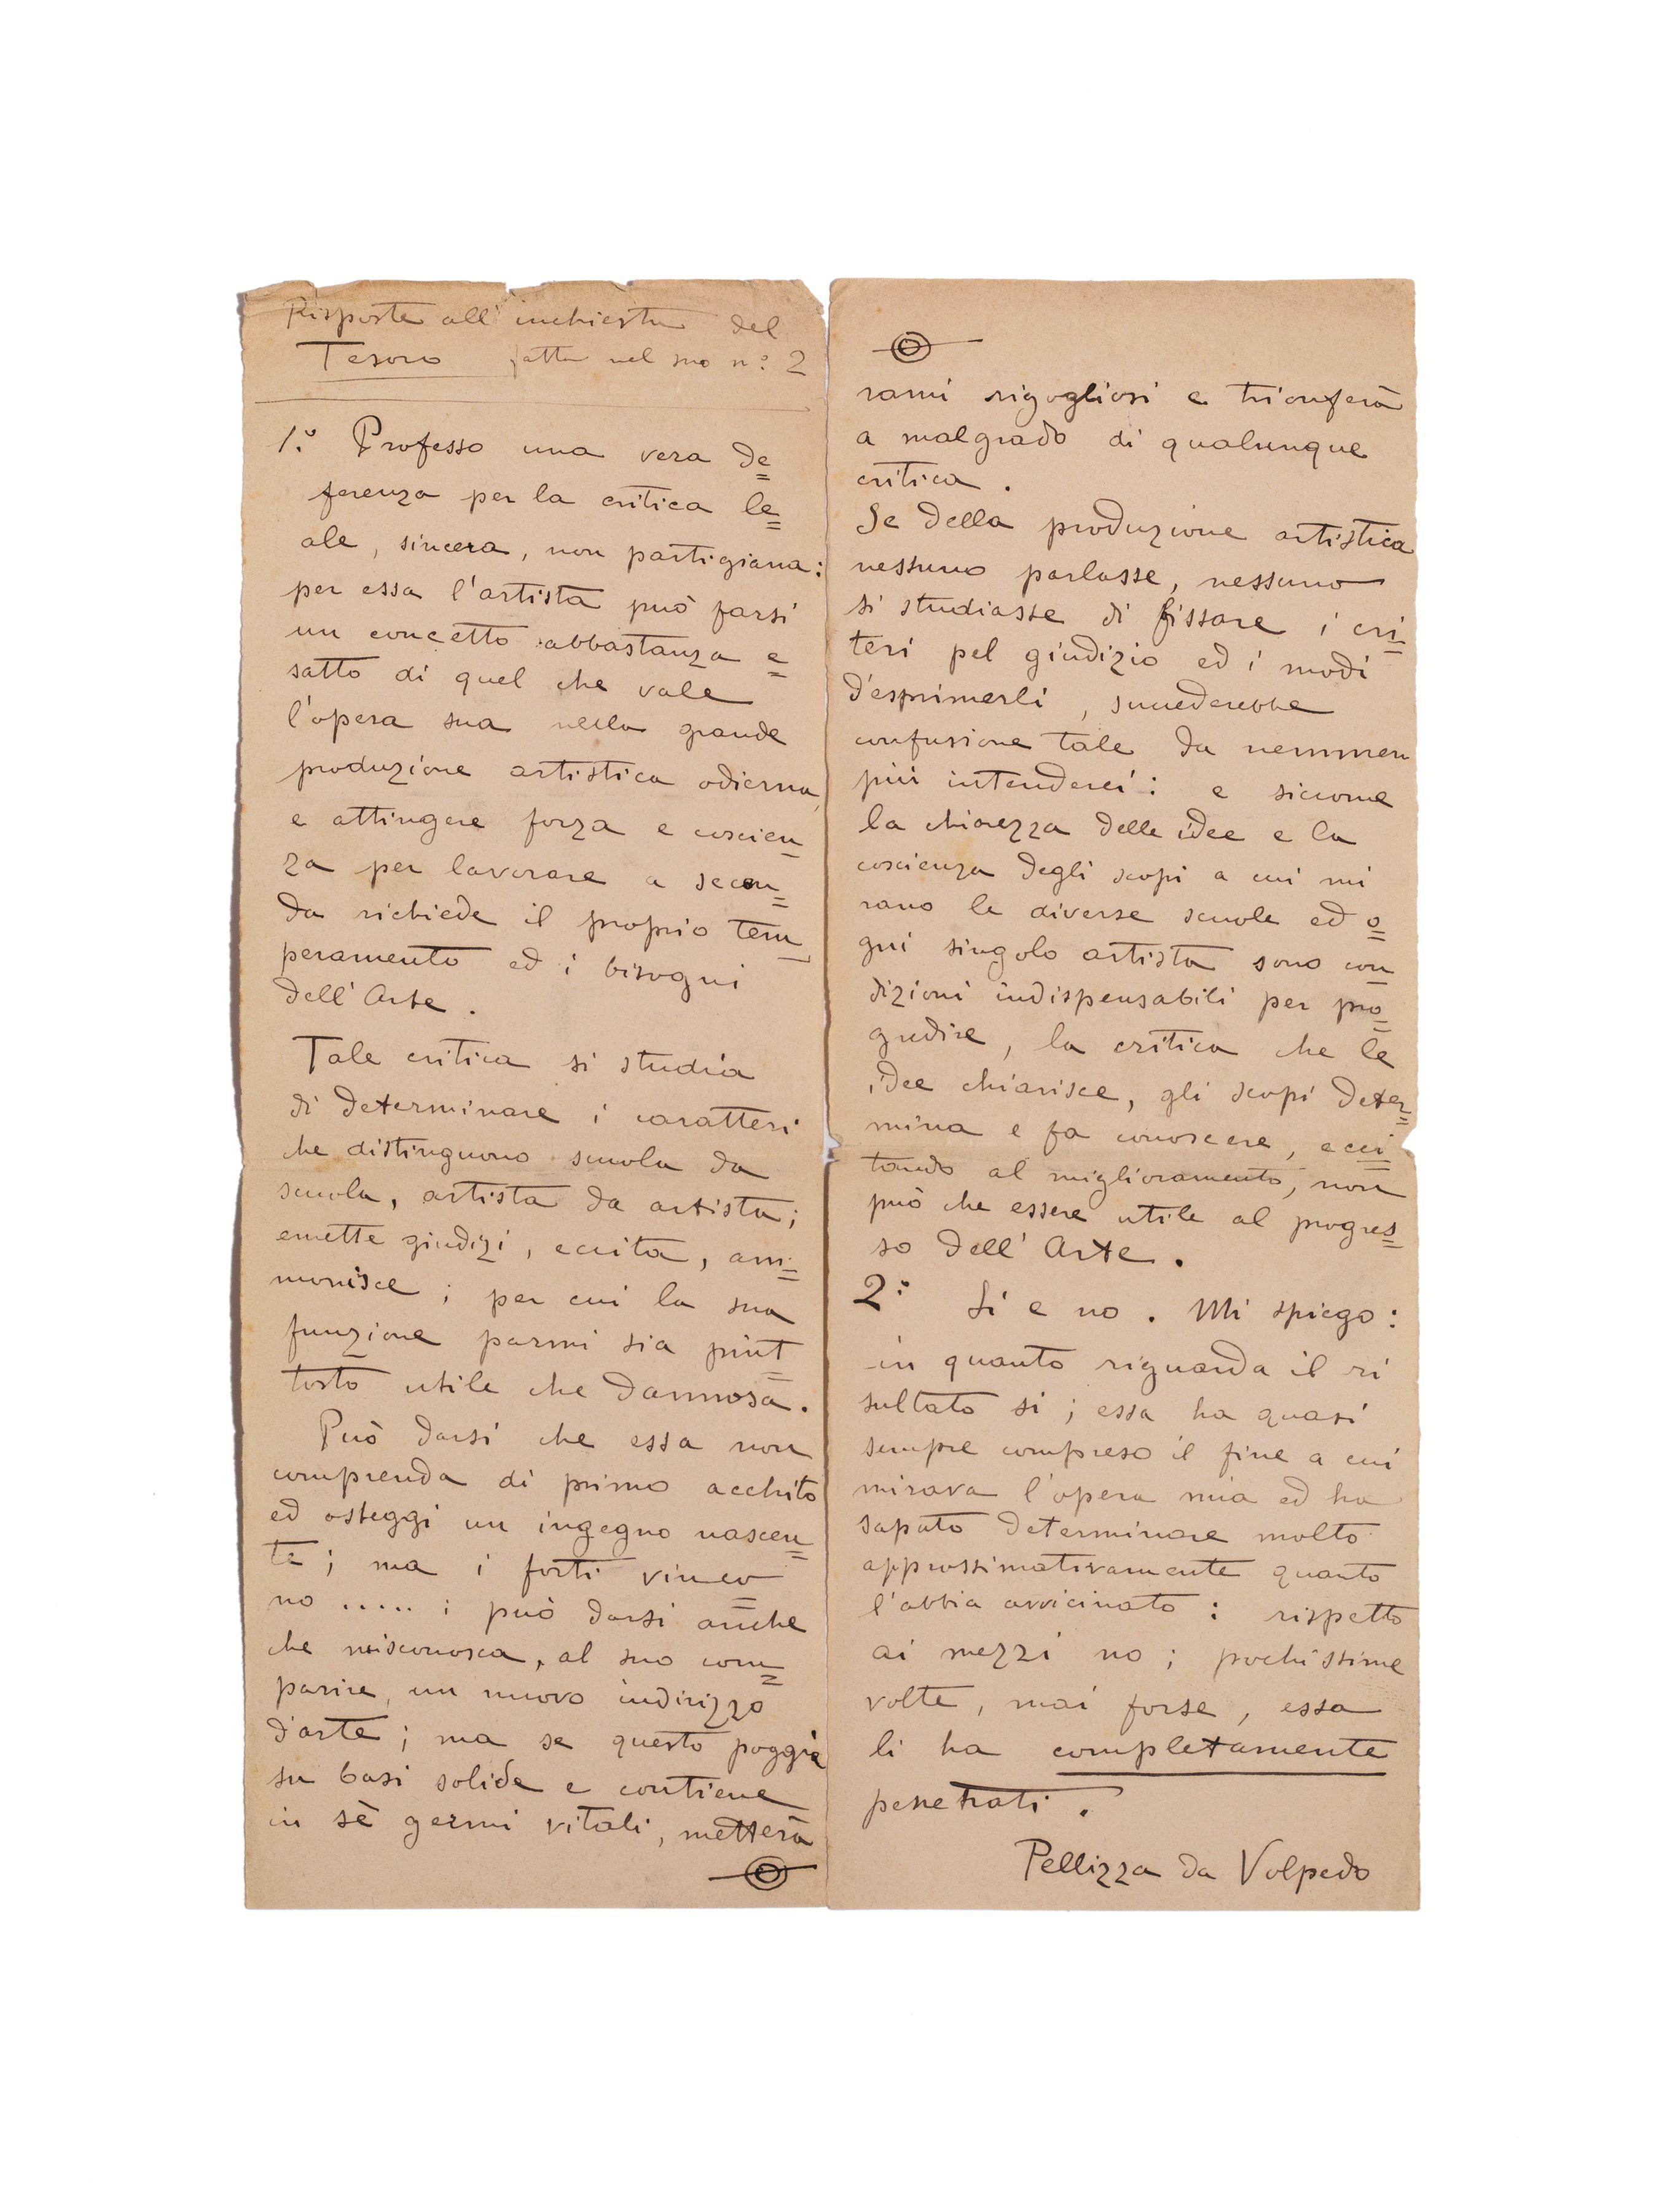 Risposte all'inchiesta del
Tesoro fatta nel suo n.º 2
1.º Professo una vera de=
ferenza per la critica le=
ale, sincera, non partigiana:
per essa l'artista può farsi
un concetto abbastanza e=
satto di quel che vale
l'opera sua nella grande
produzione artistica odierna,
e attingere forza e coscien=
za per lavorare a secon=
da richiede il proprio tem=
peramento ed i bisogni
dell'Arte.
Tale critica si studia
di determinare i caratteri
che distinguono scuola da
scuola, artista da artista;
emette giudizi, eccita, am=
monisce; per cui la sua
funzione parmi sia piut=
tosto utile che dannosa.
Può darsi che essa non
comprenda di primo acchito
ed osteggi un ingegno nascen=
te; ma i forti vinco=
no .....; può darsi anche
che misconosca, al suo com=
parire, un nuovo indirizzo
d'arte; ma se questo poggia
su basi solide e contiene
in sè germi vitali, metterà
rami rigogliosi e trionferà
a malgrado di qualunque
critica.
Se della produzione artistica
nessuno parlasse, nessuno
si studiasse di fissare i cri=
teri pel giudizio ed i modi
d'esprimerli, succederebbe
confusione tale da nemmen
più intenderci: e siccome
la chiarezza delle idee e la
coscienza degli scopi a cui mi
rano le diverse scuole ed o=
gni singolo artista sono con=
dizioni indispensabili per pro=
gredire, la critica che le
idee chiarisce, gli scopi deter=
mina e fa conoscere, ecci=
tando al miglioramento, non
può che essere utile al progres=
so dell'Arte.
2.º Sì e no. Mi spiego:
in quanto riguarda il ri
sultato si; essa ha quasi
sempre compreso il fine a cui
mirava l'opera mia ed ha
saputo determinare molto
approssimativamente quanto
l'abbia avvicinato: rispetto
ai mezzi no; pochissime
volte, mai forse, essa
li ha completamente
penetrati.
Pellizza da Volpedo